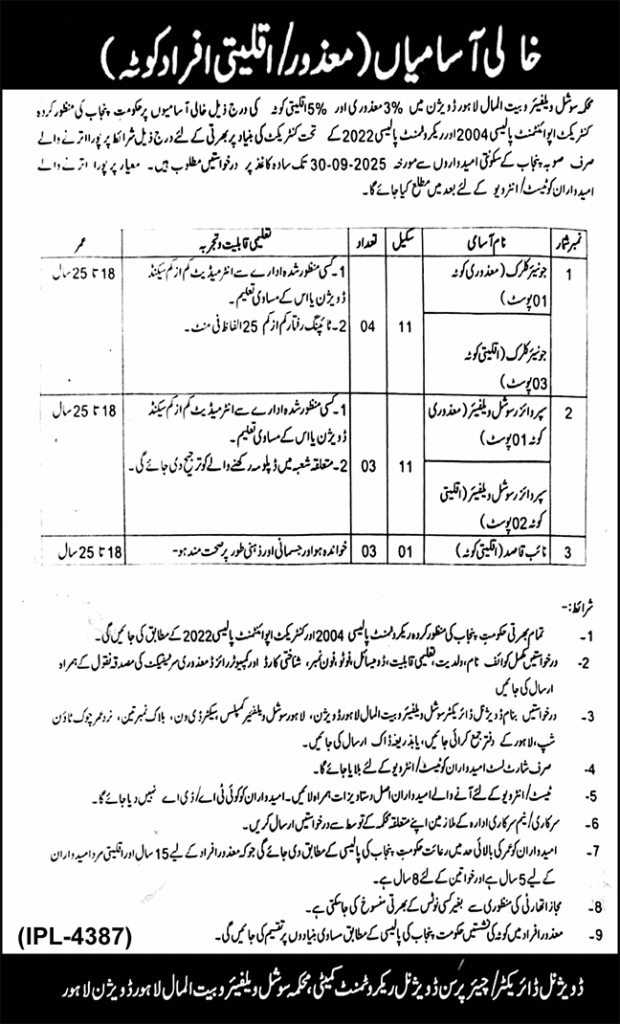 خالی آسامیاں (معذور/اقلیتی افراد کوٹہ)
محکمہ سوشل ویلفیئر و بیت المال لاہور ڈویژن میں 3% معذوری اور 5% اقلیتی کوٹہ کی درج ذیل خالی آسامیوں پر حکومت پنجاب کی منظور کردہ
کنٹریکٹ اپوائنٹمنٹ پالیسی 2004 اور ریکروٹمنٹ پالیسی 2022 کے تحت کنٹریکٹ کی بنیاد پر بھرتی کے لئے درج ذیل شرائط پر پورا اترنے والے
صرف صوبہ پنجاب کے سکونتی امیدواروں سے مورخہ 30-09-2025 تک سادہ کاغذ پر درخواستیں مطلوب ہیں۔ معیار پر پورا اترنے والے
امیدواران کو ٹیسٹ/انٹرویو کے لئے بعد میں مطلع کیا جائے گا۔
نمبر شمار نام آسامی سکیل تعداد تعلیمی قابلیت و تجربہ عمر
1 جونیئر کلرک (معذوری کوٹہ 11 04 1۔ کسی منظور شدہ ادارے سے انٹرمیڈیٹ کم از کم سیکنڈ 18 تا 25 سال
01 پوسٹ) ڈویژن یا اس کے مساوی تعلیم۔
جونیئر کلرک (اقلیتی کوٹہ 2۔ ٹائپنگ رفتار کم از کم 25 الفاظ فی منٹ۔
03 پوسٹ)
2 سپروائزر سوشل ویلفیئر (معذوری 11 03 1۔ کسی منظور شدہ ادارے سے انٹرمیڈیٹ کم از کم سیکنڈ 18 تا 25 سال
کوٹہ 01 پوسٹ) ڈویژن یا اس کے مساوی تعلیم۔
سپروائزر سوشل ویلفیئر (اقلیتی 2۔ متعلقہ شعبہ میں ڈپلومہ رکھنے والے کو ترجیح دی جائے گی۔
کوٹہ 02 پوسٹ)
3 نائب قاصد (اقلیتی کوٹہ) 01 03 خواندہ ہو اور جسمانی اور ذہنی طور پر صحت مند ہو۔ 18 تا 25 سال
شرائط:-
1- تمام بھرتی حکومت پنجاب کی منظور کردہ ریکروٹمنٹ پالیسی 2004 اور کنٹریکٹ اپوائنٹمنٹ پالیسی 2022 کے مطابق کی جائیں گی۔
2- درخواستیں مکمل کوائف نام، ولدیت، تعلیمی قابلیت، ڈومیسائل، فوٹو، فون نمبر، شناختی کارڈ اور کمپیوٹرائزڈ معذوری سرٹیفکیٹ کی مصدقہ نقول کے ہمراہ
ارسال کی جائیں
3- درخواستیں بنام ڈویژنل ڈائریکٹر سوشل ویلفیئر و بیت المال لاہور ڈویژن، لاہور سوشل ویلفیئر کمپلیس، سیکٹر ڈی ون، بلاک نمبر تین، نزد عمر چوک ٹاؤن
شپ، لاہور کے دفتر جمع کرائی جائیں، یا بذریعہ ڈاک ارسال کی جائیں۔
4- صرف شارٹ لسٹ امیدواران کو ٹیسٹ/انٹرویو کے لئے بلایا جائے گا۔
5- ٹیسٹ/انٹرویو کے لئے آنے والے امیدواران اصل دستاویزات ہمراہ لائیں۔ امیدواران کو کوئی ٹی اے/ڈی اے نہیں دیا جائے گا۔
6- سرکاری/نیم سرکاری ادارہ کے ملازمین اپنے متعلقہ محکمہ کے توسط سے درخواستیں ارسال کریں۔
7- امیدواران کو عمر کی بالائی حد میں رعایت حکومت پنجاب کی پالیسی کے مطابق دی جائے گی جو کہ معذور افراد کے لیے 15 سال اور اقلیتی مرد امیدواران
کے لیے 5 سال ہے اور خواتین کے لئے 8 سال ہے۔
8- مجاز اتھارٹی کی منظوری سے بغیر کسی نوٹس کے بھرتی منسوخ کی جاسکتی ہے۔
9- معذور افراد میں کوٹہ کی نشستیں حکومت پنجاب کی پالیسی کے مطابق مساوی بنیادوں پر تقسیم کی جائیں گی۔
(IPL-4387)
ڈویژنل ڈائریکٹر/چیئرپرسن ڈویژنل ریکروٹمنٹ کمیٹی، محکمہ سوشل ویلفیئر و بیت المال لاہور ڈویژن لاہور